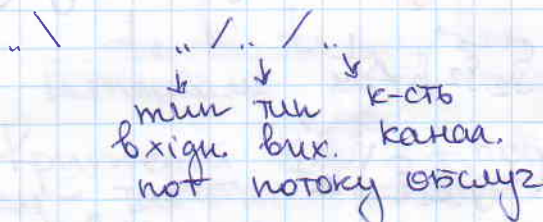 .. \ .. / .. / ..
тип тип к-сть
вхідн. вих. канал.
пот потоку обслуг